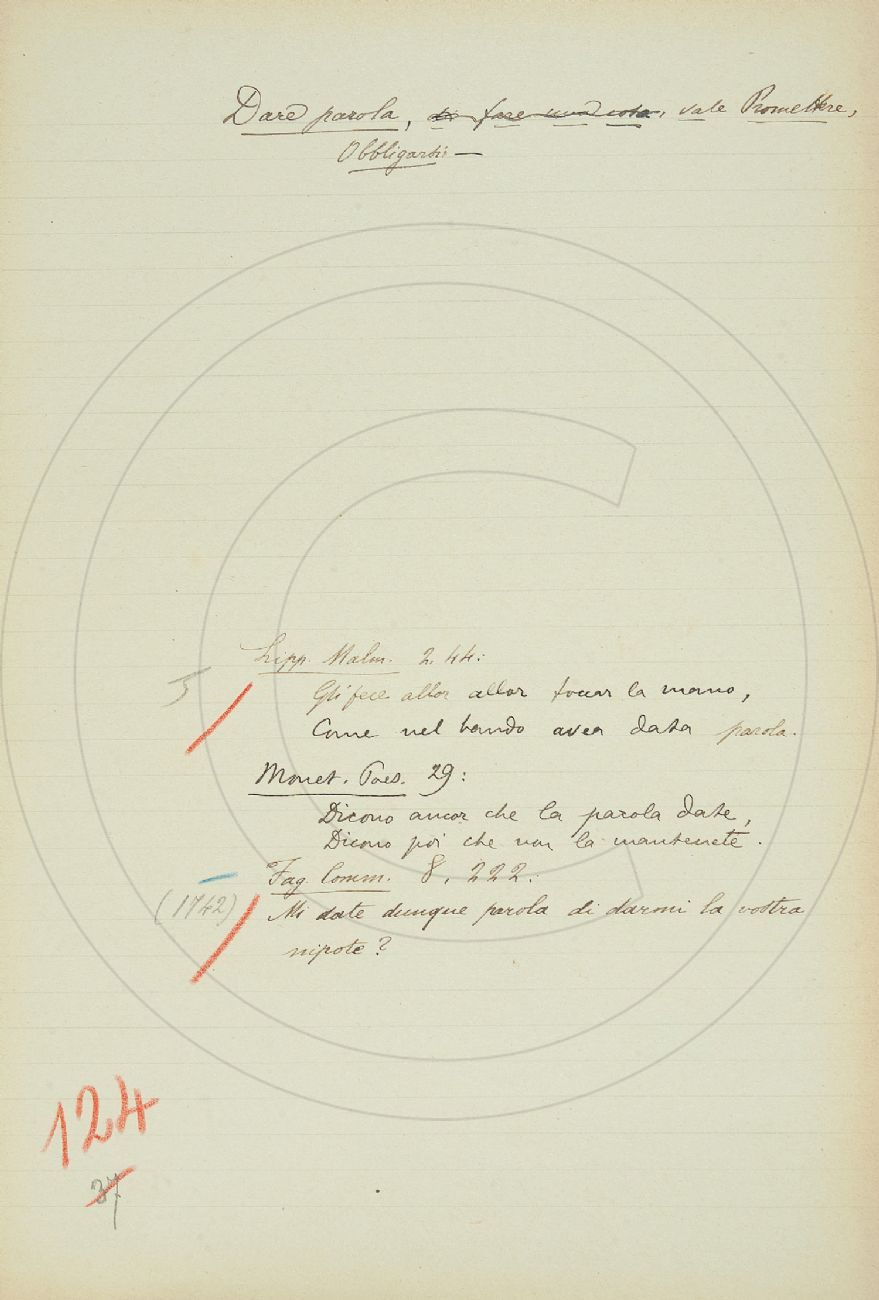 Dare parola, di fare una cosa, vale Promettere,
Obbligarsi: —
Lipp. Malm. 2. 44:
5
Gli fece allor allor toccar la mano,
Come nel bando avea data parola.
Monet. Poes. 29:
Dicono ancor che la parola date,
Dicono poi che non la mantenete.
Fag. Comm. 8. 222.:
(1742)
Mi date dunque parola di darmi la vostra
nipote?
124
37